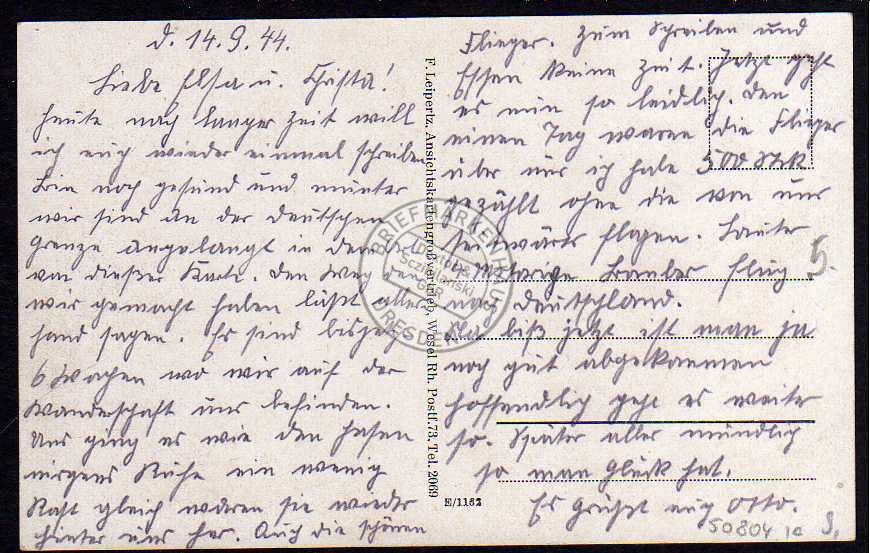 d. 14.9.44.
Liebe Elsa u. Christa!
Heute nach langer Zeit will
ich euch wieder einmal schreiben
Bin noch gesund und munter
wir sind an der deutschen
Grenze angelangt in
von dießer Karte. Den Weg den
wir gemacht haben läßt aller
hand sagen. Es sind bisher
6 Wochen wo wir auf der
Wanderschaft uns befinden.
Uns ging es wie den Hasen
nirgens Ruhe ein wenig
Rast gleich waren sie wieder
hinter uns her. Auch die schönen
Flieger. Zum Schreiben und
Essen keine Zeit. Jetzt geht
es nun so leidlich. Den
einen Tag waren die Flieger
über uns ich habe 500 Stck
gezählt ohne die von uns
seitwärts flogen. Lauter
4 Motorige Bomber flug
nach Deutschland.
biß jetzt ist man ja
noch gut abgekommen
hoffendlich geht es weiter
so. Später alles mündlich
so man Glück hat.
Es Grüßt euch Otto.
5.
50804
F. Leipertz, Ansichtskartengroßvertrieb, Wesel Rh. Postf.73, Tel. 2069
E/1162
BRIEFMARKENHAUS
Sczibilanski
GbR
DRESDEN